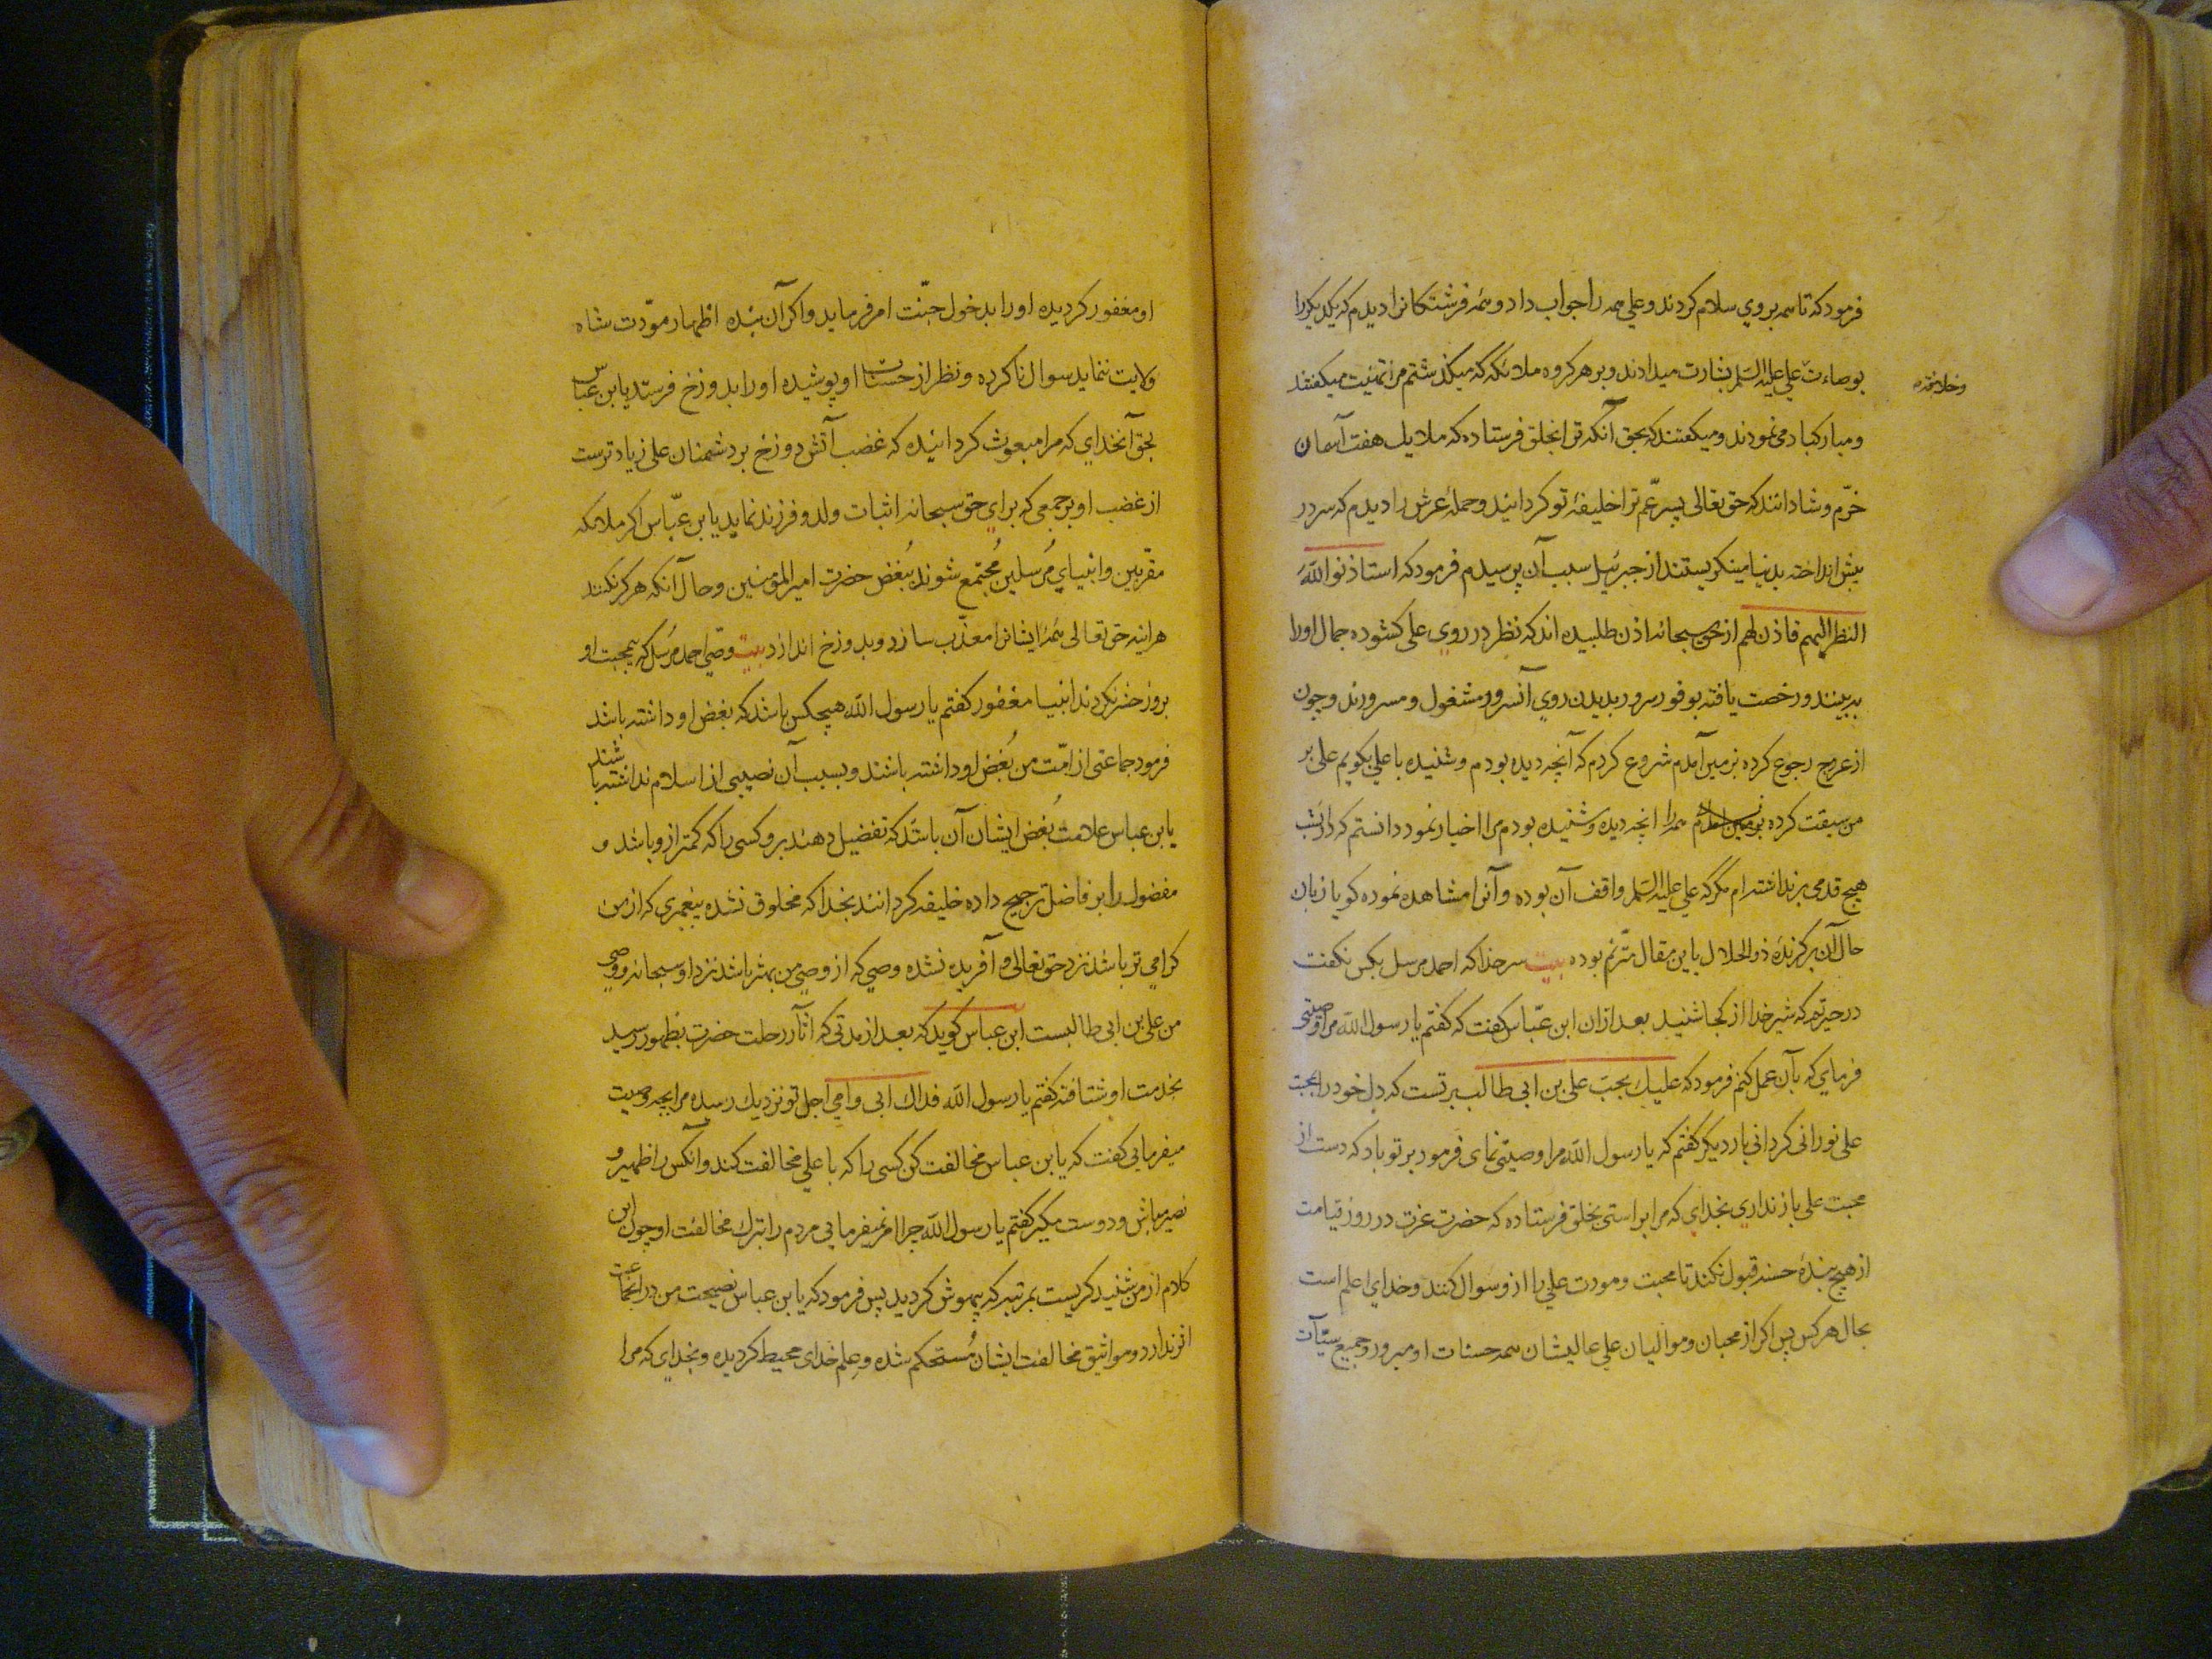 فرمود که تا همه بروی سلام کردند و علی همه را جواب داد و همه فرشتگانرا دیدم که یکدیکررا
بوصاءت علی علیه السلم بشارت میدادند و بر هر کروه ملائکه که میکذشتم مرا تهنیت میکفتند
و مبارکباد می نمودند و میکفتند که بحق آنکه ترا بخلق فرستاده که ملایک هفت آسمان
خرّم و شادانند که حق تعالی پسر عّم ترا خلیفهٔ تو کردانید و حملهٔ عرش را دیدم که سر در
پیش انداخته بدنیا مینکریستند از جبرئیل سبب آن پرسیدم فرمود که استاذنوا اللّه
النظر الیهم فاذن لهم از حق سبحانه اذن طلبیده اند که نظر در روی علی کشوده جمال او را
به بینند و رخصت یافته بوفور سرور بدیدن روی آنسرور مشغول و مسرورند و چون
از عروج رجوع کرده بزمین آمدم شروع کردم که آنچه دیده بودم و شنیده با علی بکویم علی بر
من سبقت کرده همه را انچه دیده و شنیده بودم مرا اخبار نمود دانستم که در انشب
هیچ قدمی بر نداشته ام مکر که علی علیه السلم واقف آن بوده و آنرا مشاهده نموده کویا زبان
حال آن برکزیدهٔ ذوالجلال باین مقال مترّنم بوده بیت سر خدا که احمد مرسل بکس نکفت
در حیرتم که شیر خدا از کجا شنید بعد ازان ابن عبّاس کفت که کفتم یا رسول اللّه مرا وصیتی
فرمای که بآن عمل کنم فرمود که علیک بحب علی بن ابی طالب بر تست که دل خود را بمحبت
علی نورانی کردانی بار دیکر کفتم که یا رسول اللّه مرا وصیّتی نمای فرمود بر تو باد که دست از
محبت علی باز نداری بخدای که مرا براستی بخلق فرستاده که حضرت عزت در روز قیامت
از هیچ بندهٔ حسنه قبول نکند تا محبت و مودت علی را از و سوال کنند و خدای اعلم است
بحال هر کس پس اکر از محبان و موالیان علی عالیشان همه حسنات او مبرور و جمیع سیّآت
او مغفور کردیده او را بدخول جنّت امر فرماید و اکر آن بنده اظهار موّدت شاه
ولایت ننماید سوال ناکرده و نظر از حسنات او پوشیده او را بدوزخ فرستد یا بن عباس
بحق آنخدای که مرا مبعوث کردانیده که غضب آتش دوزخ بر دشمنان علی زیادترست
از غضب او بر جمعی که برای حق سبحانه اثبات ولد و فرزند نماید یا بن عبّاس اکر ملائکه
مقربین و انبیای مُرسلین مُجتمع شوند ببُغض حضرت امیرالمؤمنین و حال آنکه هرکز نکنند
هراینه حق تعالی همهٔ ایشانرا معذّب سازد و بدوزخ اندازد بیت وصّی احمد مُرسل که بی محبت او
بروز حشر نکردند انبیا مغفور کفتم یا رسول اللّه هیچکس باشد که بغض او داشته باشد
فرمود جماعتی از امّت من بُغض او داشته باشند و بسبب آن نصیبی از اسلام نداشته باشند
یا بن عباس علامت بُغض ایشان آن باشد که تفضیل دهند برو کسی را که کمتر از و باشد و
مفضول را بر فاضل ترجیح داده خلیفه کردانند بخدا که مخلوق نشده پیغمبری که از من
کرامی تر باشد نزد حق تعالی و آفریده نشده وصی که از وصی من بهتر باشد نزد او سبحانه و وصی
من علی بن ابی طالبست ابن عباس کوید که بعد از مدتی که اثآر رحلت حضرت بظهور رسید
بخدمت او شتافته کفتم یا رسول اللّه فداک ابی و امی اجل تو نزدیک رسیده مرا بچه وصیت
میفرمایی کفت که یا بن عباس مخالفت کن کسی را که با علی مخالفت کند و آنکس را ظهیر و
نصیر مباش و دوست مکیر کفتم یا رسول اللّه چرا امر نمیفرمایی مردم را بترک مخالفت او چون این
کلام از من شنید کریست بمرتبه که بیهوش کردید پس فرمود که یا بن عباس نصیحت من در انجماعت
اثر ندارد و مواثیق مخالفت ایشان مُستحکم شده و عِلم خدای محیط کردیده و بخدای که مرا